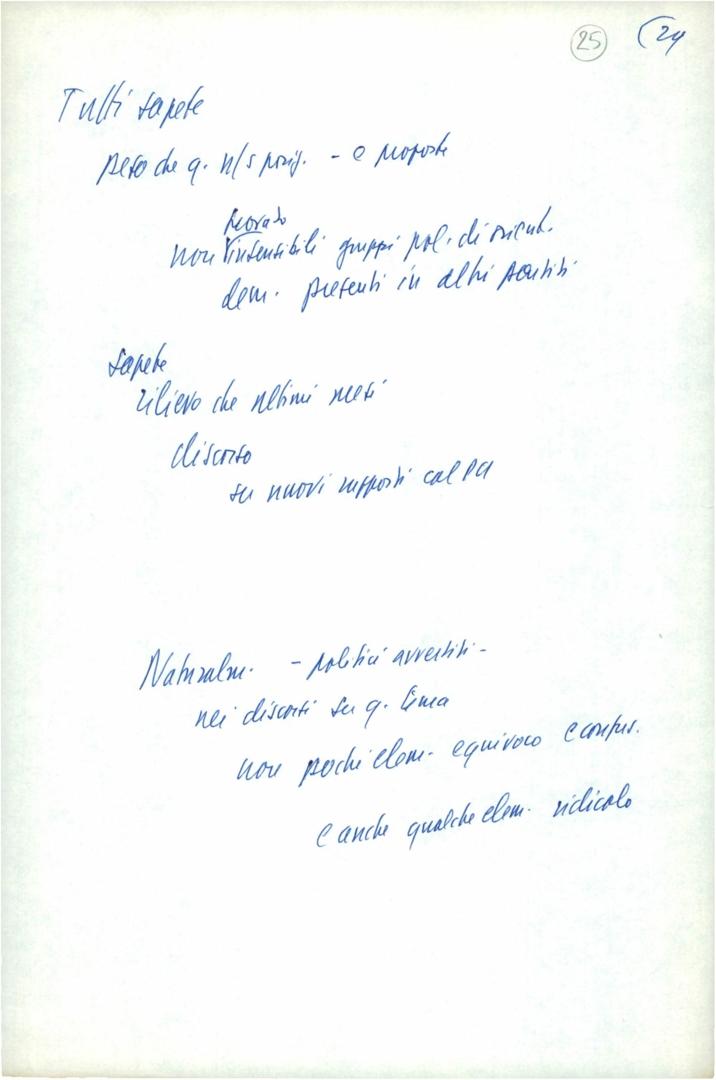 25 (24
Tutti sapete
peso che q. n/s posiz. - e proposte
trovato
non insensibili gruppi pol. di orient.
dem. presenti in altri partiti
Sapete
rilievo che ultimi mesi
discorso
su nuovi rapporti col PCI
Naturalm. - politici avvertiti -
nei discorsi su q. tema
non pochi elem. equivoco e confus.
e anche qualche elem. ridicolo